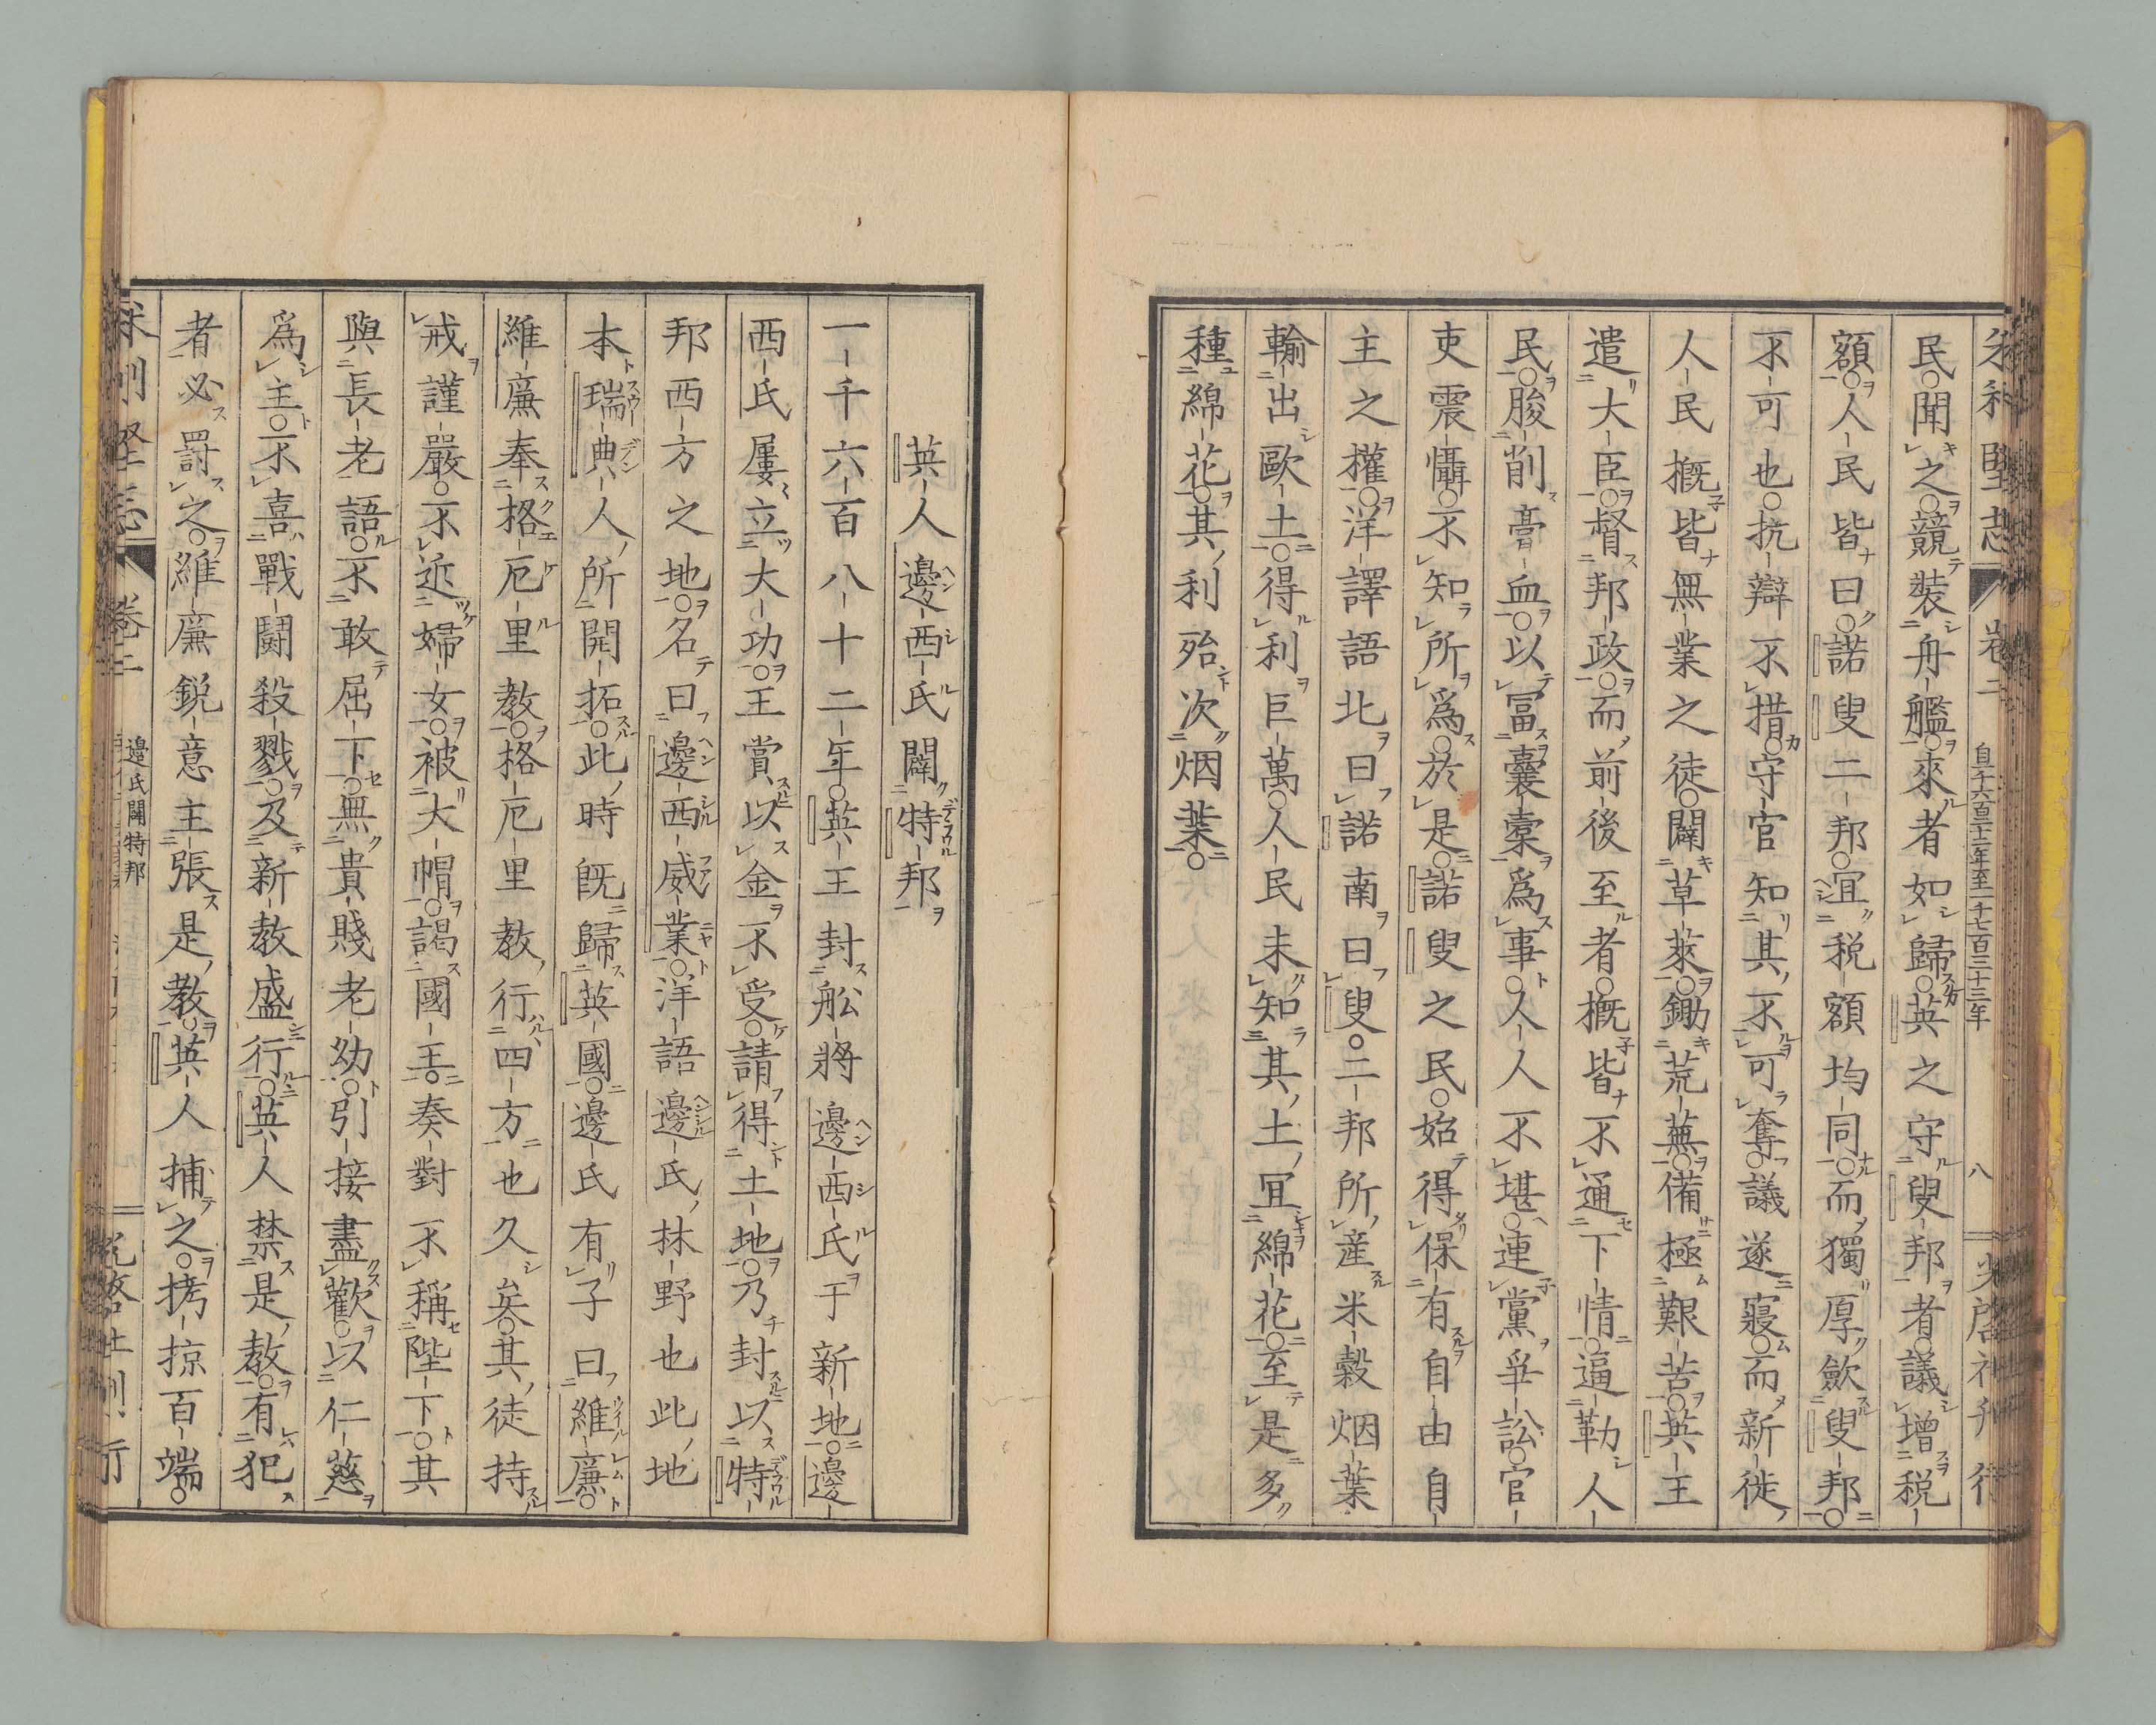 米利堅志 卷二 自千六百二十年至一千七百三十三年 八 光啓社刊行
民聞之競裝舟艦來者如歸英之守叟邦者議增税
額人民皆曰諾叟二邦宜税額均同而獨厚歛叟邦
不可也抗辯不措守官知其不可奪議遂寢而新徙
人民概皆無業之徒闢草萊鋤荒蕪備極艱苦英王
遣大臣督邦政而前後至者概皆不通下情逼勒人
民朘削膏血以冨囊橐爲事人人不堪連黨爭訟官
吏震懾不知所爲於是諾叟之民始得保有自由自
主之權洋譯語北曰諾南曰叟二邦所産米穀烟葉
輸出歐土得利巨萬人民未知其土冝綿花至是多
種綿花其利殆次烟葉
英人邊西氏闢特邦
一千六百八十二年英王封舩將邊西氏于新地邊
西氏屢立大功王賞以金不受請得土地乃封以特
邦西方之地名曰邊西威業洋語邊氏林野也此地
本瑞典人所開拓此時既歸英國邊氏有子曰維廉
維廉奉格厄里教格厄里教行四方也久矣其徒持
戒謹嚴不近婦女被大帽謁國王奏對不稱陛下其
與長老語不敢屈下無貴賤老幼引接盡歡以仁慈
爲主不喜戰鬪殺戮及新教盛行英人禁是教有犯
者必罰之維廉鋭意主張是教英人捕之拷掠百端
米利堅志 卷二 邊氏闢特邦 光啓社刊行